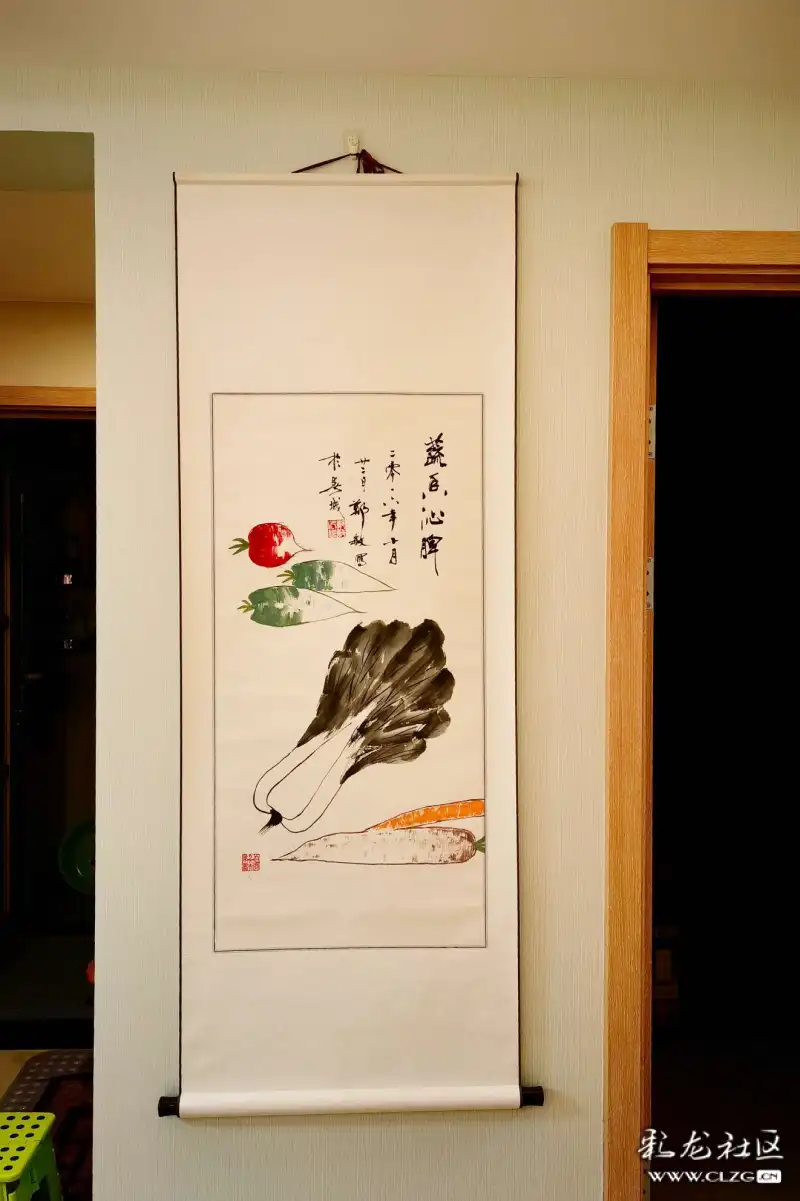 蔬香沁脾
二零一六年十月
廿二日鄭敏寫
於美城
彩龙社区
WWW.CLZG.CN